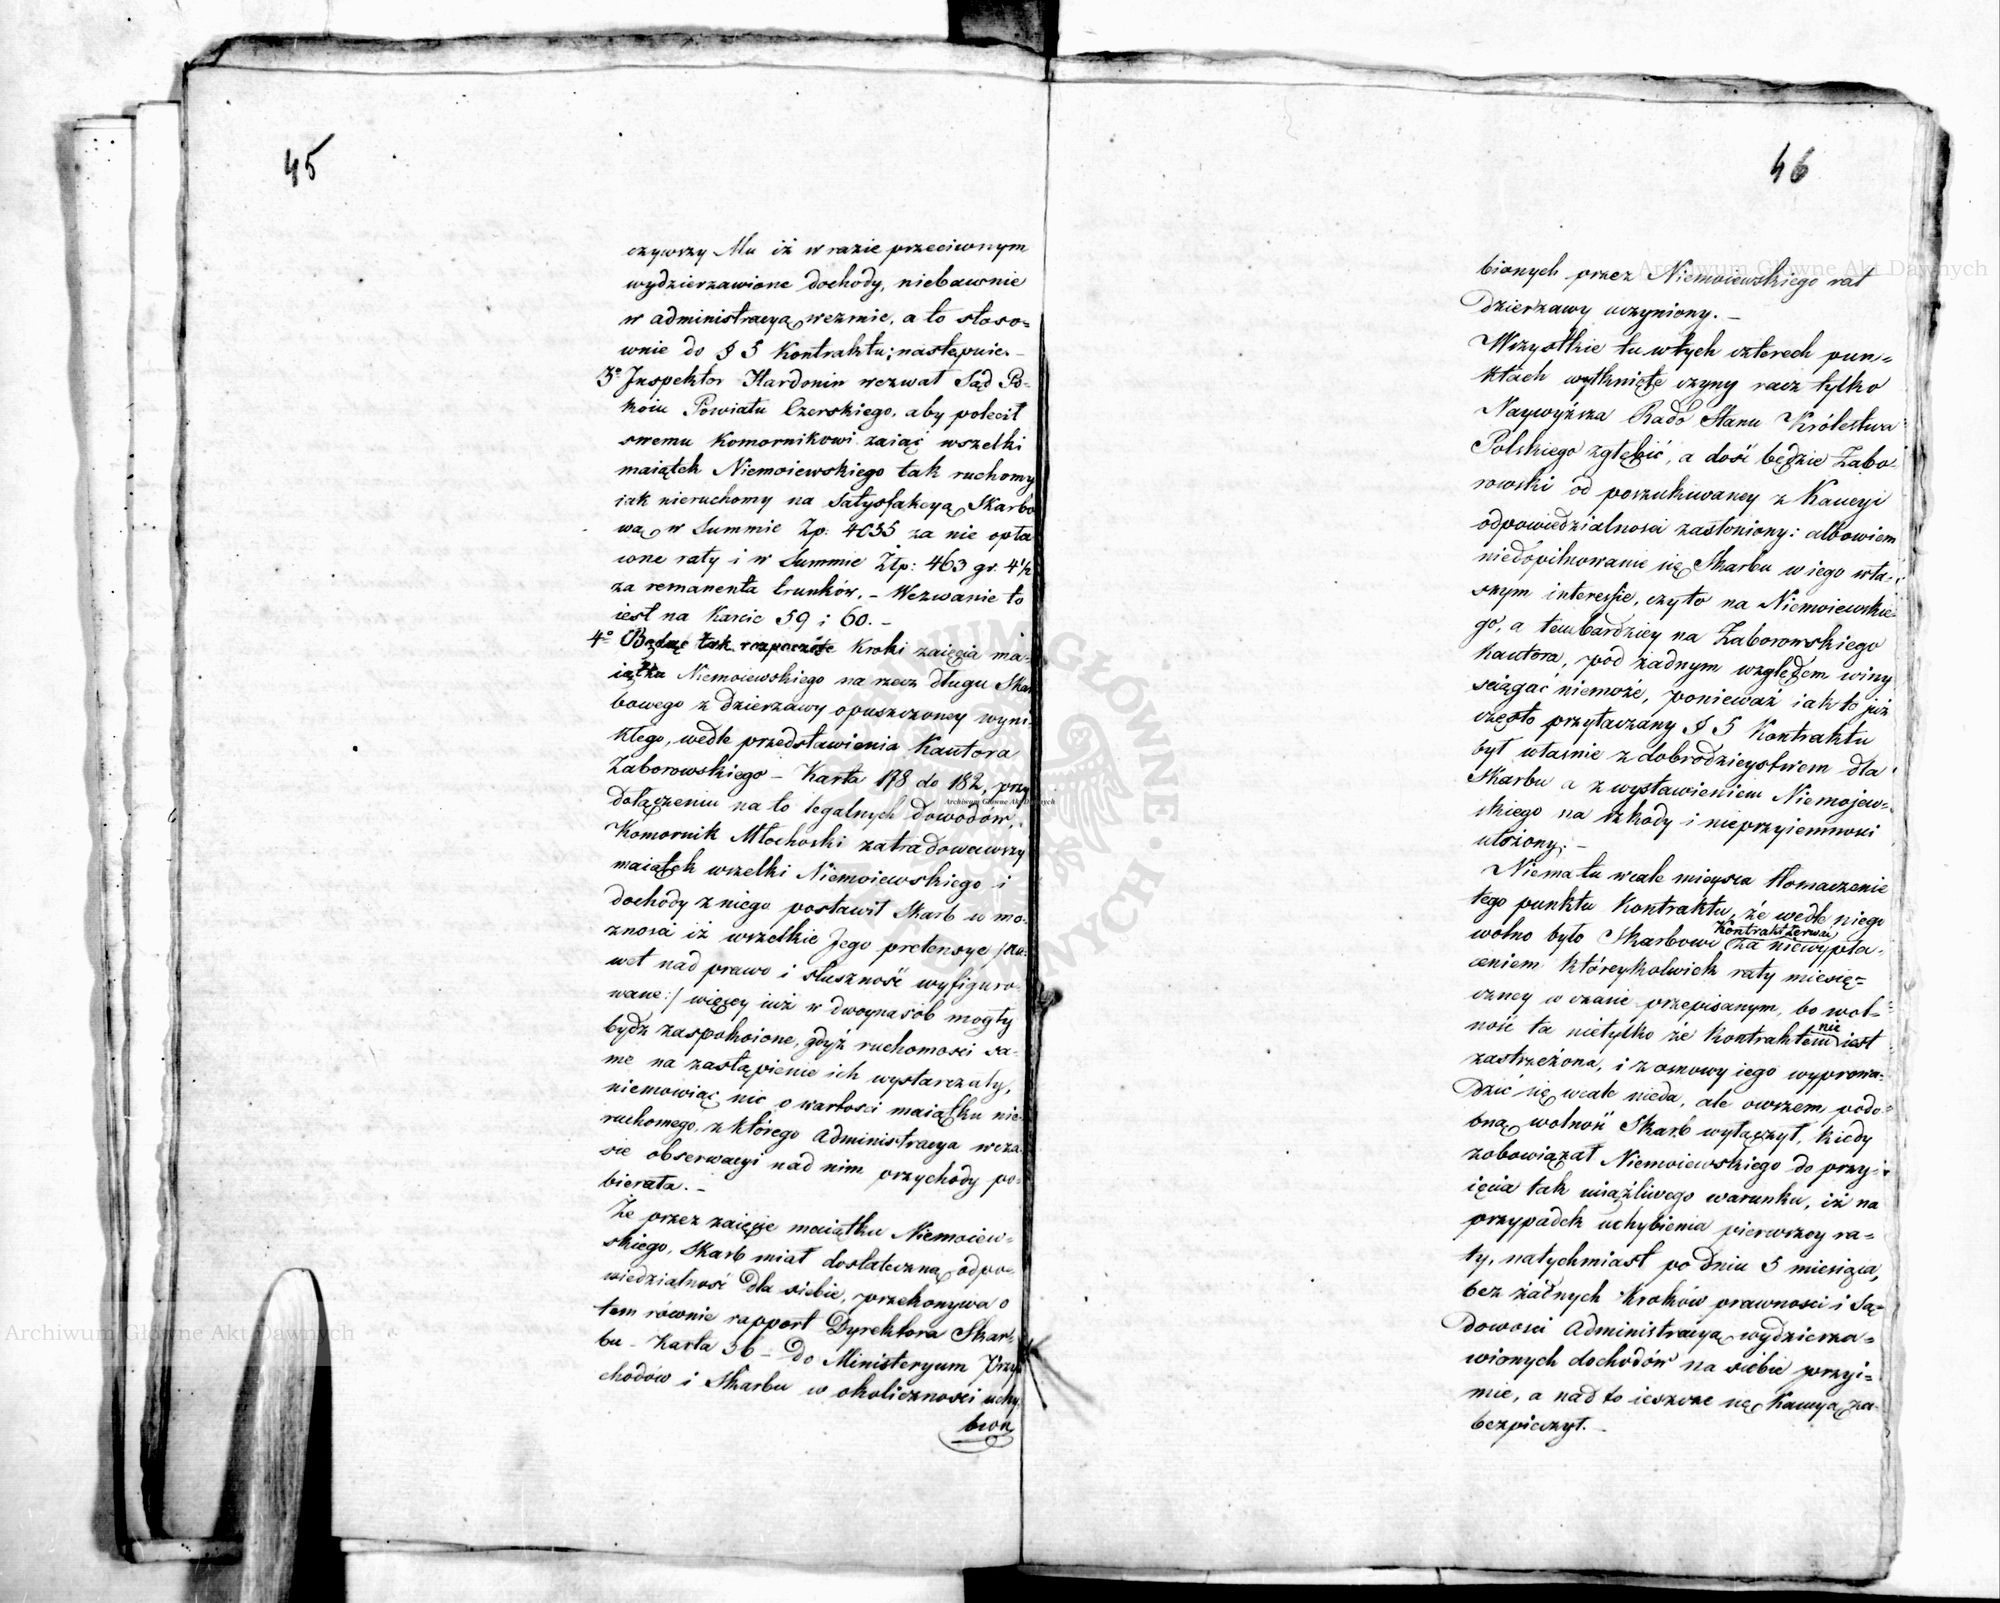 45
czywszy Mu iż w razie przeciwnym
wydzierzawione dochody, niebawnie
w administracyą wezmie, a to stoso=
wnie do § 5 Kontraktu; następnie. –
3o Inspektor Hardonin wezwał Sąd Po-
koiu Powiatu Czerskiego, aby polecił
swemu Komornikowi zaiąć wszelki
maiątek Niemoiewskiego tak ruchomy
iak nieruchomy na Satysfakcyą Skarbo
wą w Summie Zp: 4635 za nie opła
cone raty i w Summie Złp: 463 gr. 4½
za remanenta trunków. – Wezwanie to
iest na Karcie 59 i 60. –
4o Będąc tak rozpoczęte Kroki zaięcia ma-
iątku Niemoiewskiego na rzecz długu Skar
bowego z dzierzawy opuszczoney wyni-
kłego, wedle przedstawienia Kautora
Zaborowskiego – Karta 178 do 182, przy
dołączeniu na to legalnych dowodów,
Komornik Młochoski zatradowawszy
maiątek wszelki Niemoiewskiego i
dochody z niego postawił Skarb w mo-
żnosci iż wszelkie Jego pretensye /na-
wet nad prawo i słuszność wyfiguro-
wane:/ więcey iuż w dwoynasób mogły
bydz zaspokoione, gdyż ruchomosci sa-
me na zastąpienie ich wystarczały,
niemowiąc nic o wartosci maiątku nie-
ruchomego, z którego Administracya wcza-
sie obserwacyi nad nim przychody po-
bierała. –
Że przez zaięcie maiątku Niemoiew-
skiego, Skarb miał dostateczną odpo-
wiedzialność dla siebie, przekonywa o
tem równie rapport Dyrektora Skar-
bu – Karta 36 – do Ministeryum Przy
chodów i Skarbu w okoliczności uchy
bion
46
bionych przez Niemoiewskiego rat
Dzierzawy uczyniony. –
Wszystkie tu w tych czterech pun=
ktach wytknięte czyny racz tylko
Naywyższa Rado Stanu Królestwa
Polskiego zgłębić, a dość będzie Zabo-
rowski od poszukiwaney z Kaucyi
odpowiedzialnosci zasłoniony: albowiem
niedopilnowanie się Skarbu w iego wła-
snym interessie, czy to na Niemoiewskie-
go, a tembardziey na Zaborowskiego
Kautora, pod żadnym względem winy
sciągać niemoże, ponieważ iak to już
często przytaczany § 5 Kontraktu
był własnie z dobrodzieystwem dla
Skarbu a z wystawieniem Niemojew-
skiego na szkody i nieprzyiemnosci
ułożony. –
Niema tu wcale mieysca tłomaczenie
tego punktu Kontraktu, że wedle niego
wolno było Skarbowi Kontrakt zerwać za niewypła-
ceniem któreykolwiek raty miesię=
czney w czasie przepisanym, bo wol-
ność ta nietylko że Kontraktem nie iest
zastrzeżona, i z osnowy iego wyprowa-
dzić się wcale nieda, ale owszem podo-
bną wolność Skarb wyłączył, kiedy
zobowiązał Niemoiewskiego do przy-
ięcia tak uciążliwego warunku, iż na
przypadek uchybienia pierwszey ra=
ty, natychmiast po dniu 5 miesiąca,
bez żadnych Kroków prawnosci i Są-
dowosci Administracyą wydzierza=
wionych dochodów na siebie przyi=
mie, a nad to ieszcze się Kaucyą za-
bezpieczył. –
Archiwum Główne Akt Dawnych
Archiwum Główne Akt Dawnych
Archiwum Główne Akt Dawnych